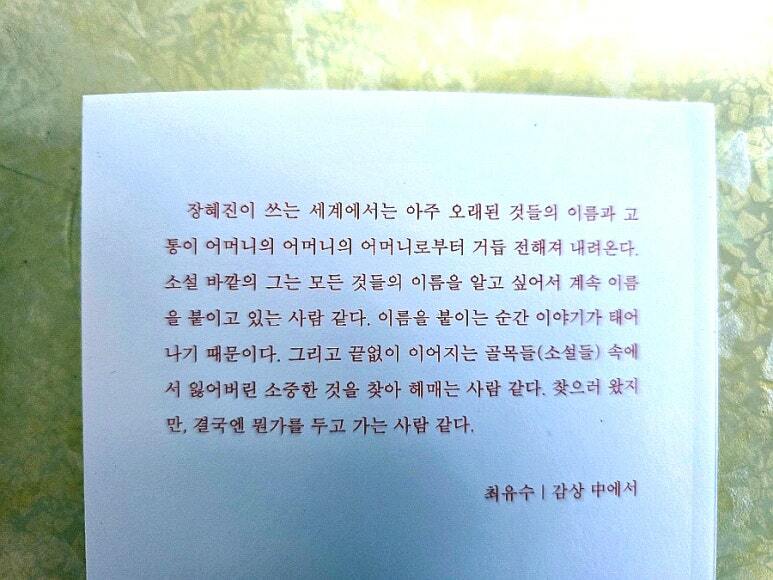 장혜진이 쓰는 세계에서는 아주 오래된 것들의 이름과 고
통이 어머니의 어머니의 어머니로부터 거듭 전해져 내려온다.
소설 바깥의 그는 모든 것들의 이름을 알고 싶어서 계속 이름
을 붙이고 있는 사람 같다. 이름을 붙이는 순간 이야기가 태어
나기 때문이다. 그리고 끝없이 이어지는 골목들(소설들) 속에
서 잃어버린 소중한 것을 찾아 헤매는 사람 같다. 찾으러 왔지
만, 결국엔 뭔가를 두고 가는 사람 같다.
최유수 | 감상 中에서